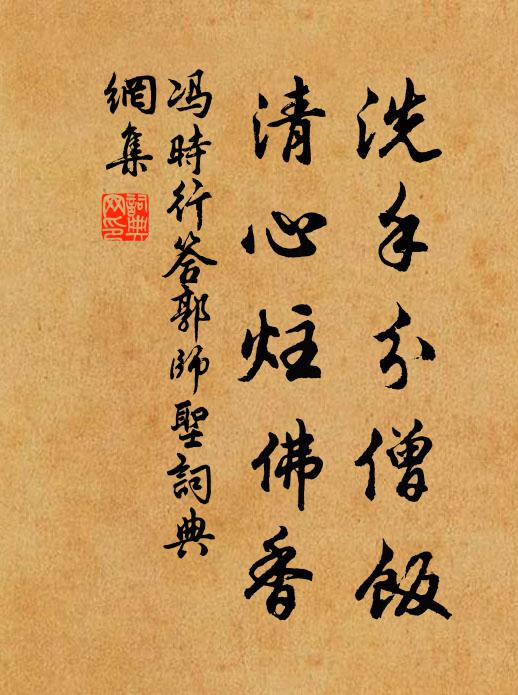 洗手分僧飯
清心炷佛香
馮時行答郭師聖詞典
網集
詞典网印